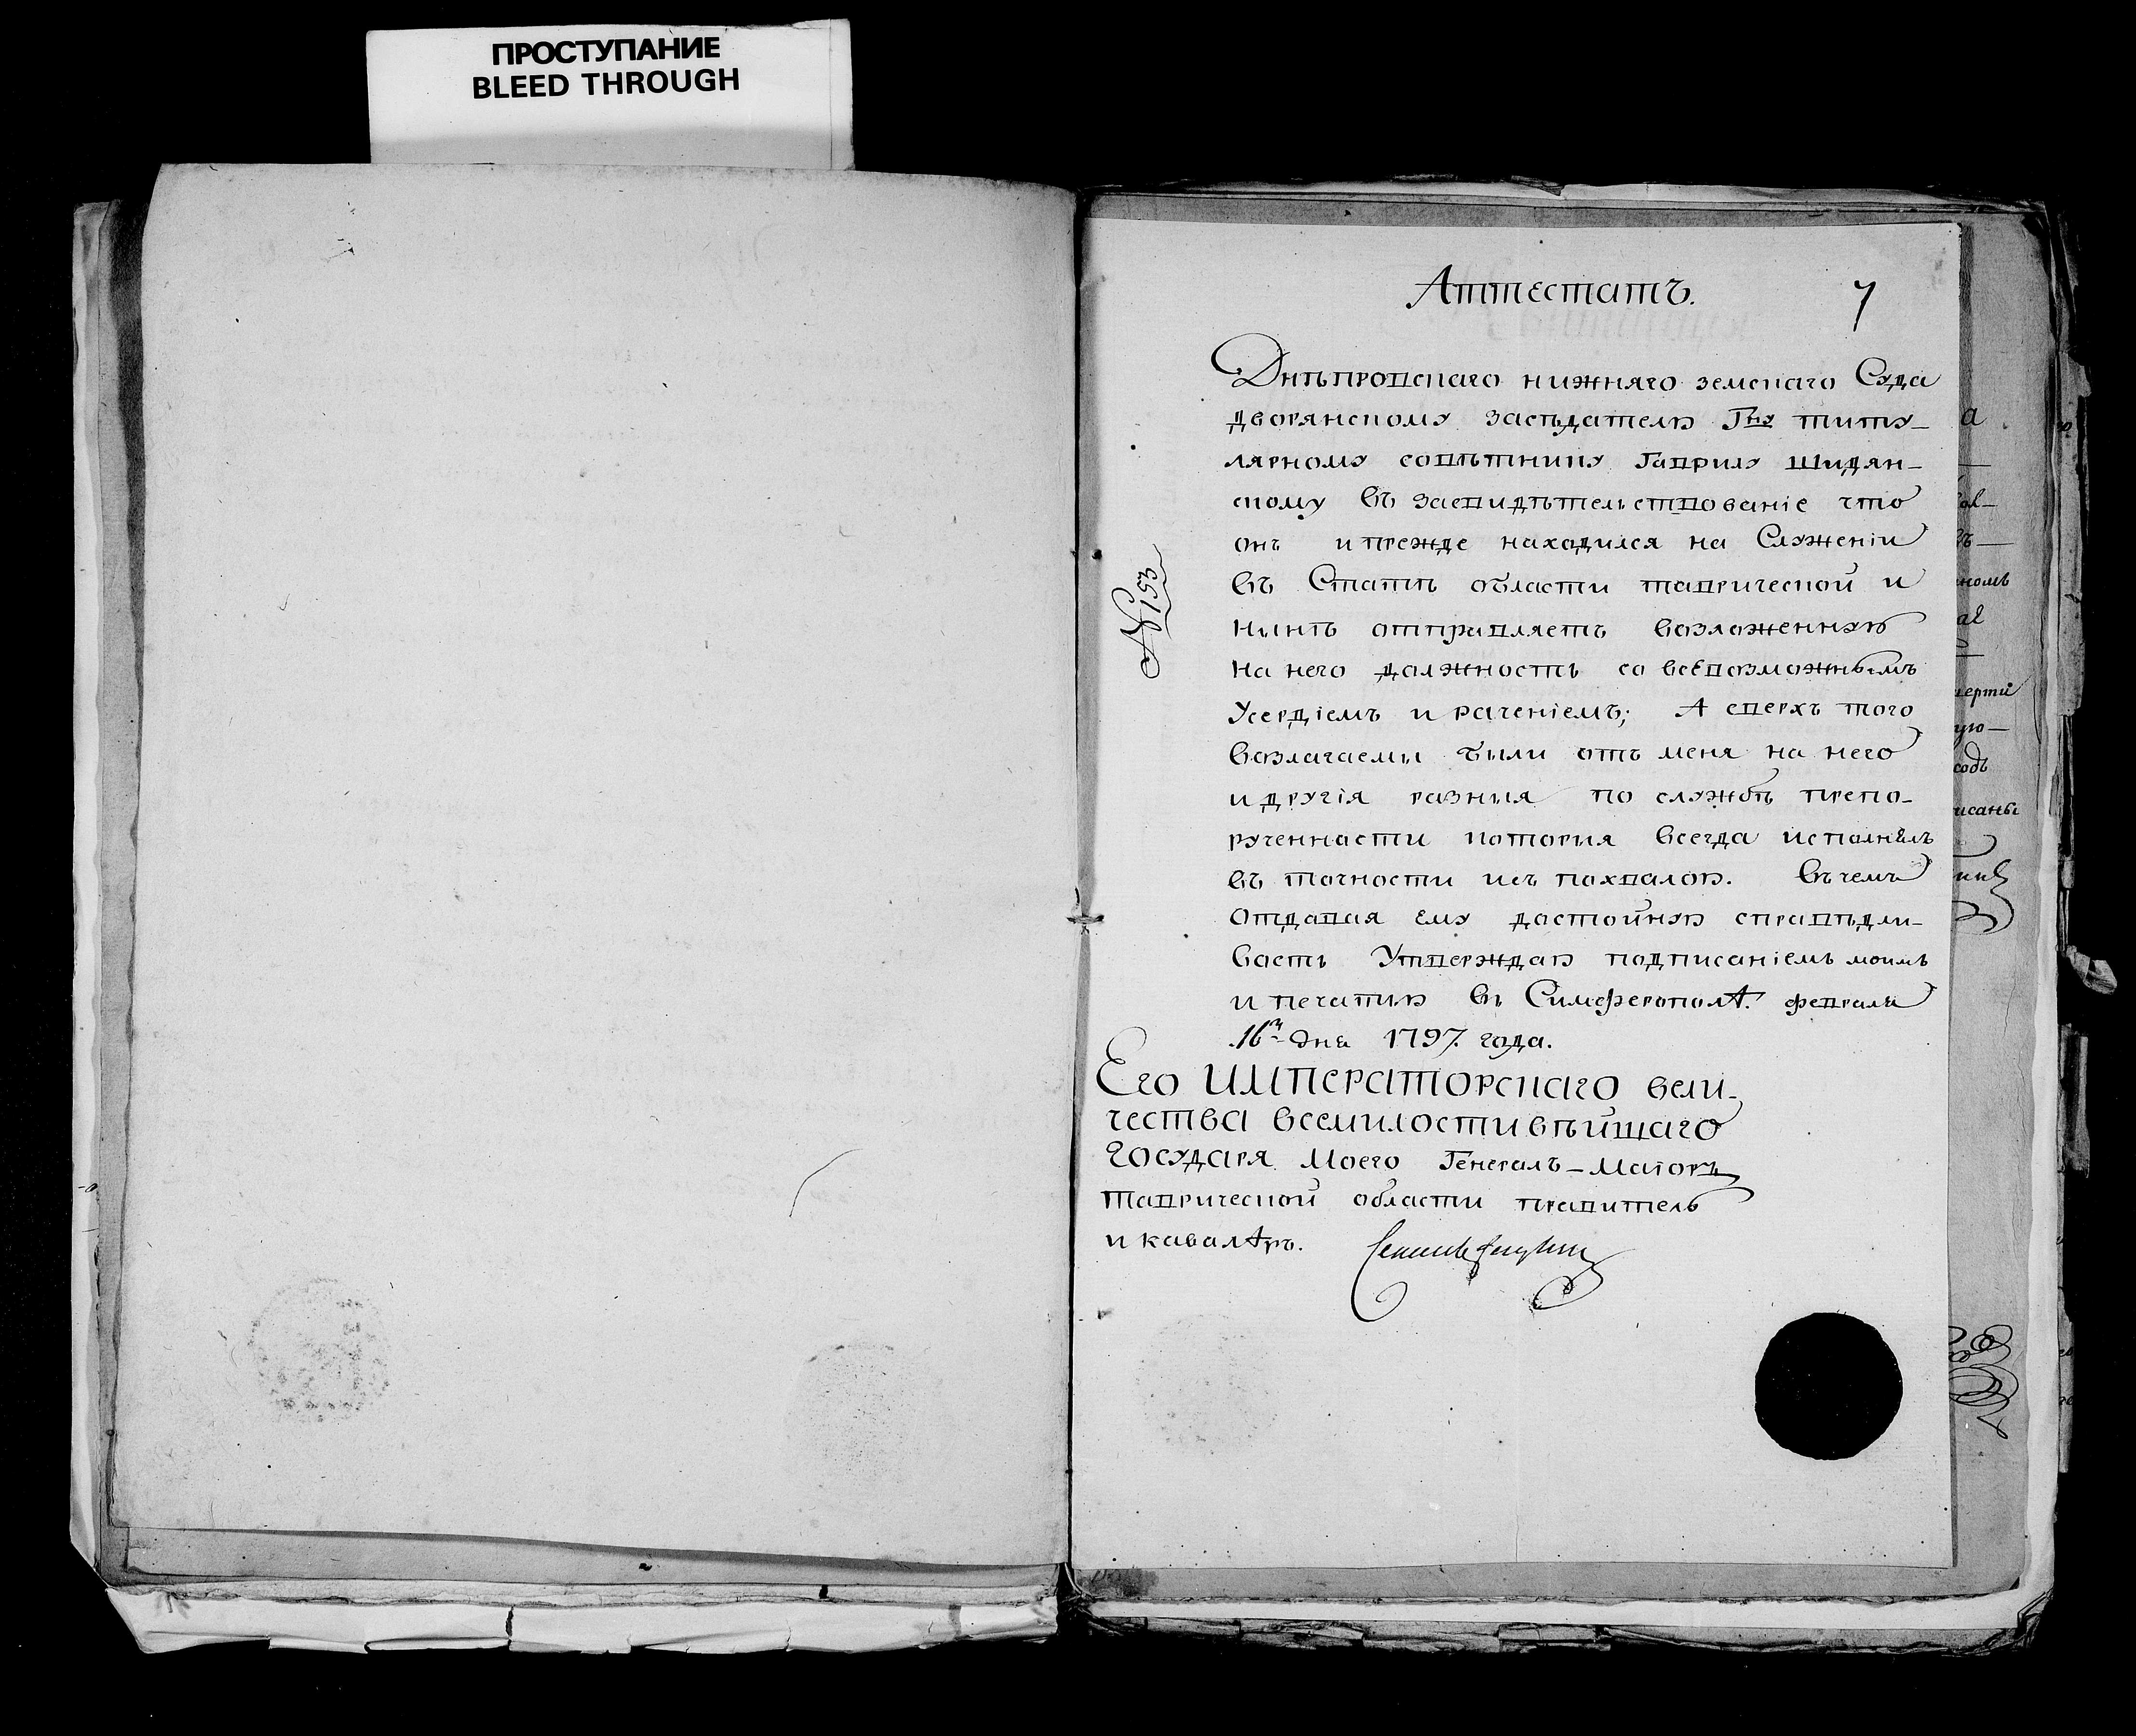 ПРОСТУПАНИЕ
BLEED THROUGH
Аттестатъ.
7
Днѣпровскаго нижняго земскаго Суда
дворянскому засѣдателю Гну титу-
лярному совѣтнику Гаврилу Шидян-
скому въ засвидѣтельствование что
онъ и прежде находился на Служеніи
въ Статѣ области таврической и
нынѣ отправляетъ возложенную
на него должность со всевозможнымъ
Усердіемъ и раченіемъ; А сверхъ того
возлагаемы были отъ меня на него
и другія разныя по службѣ препо-
рученности которыя всегда исполнялъ
въ точности исъ похвалою. Въ чемъ
отдавая ему достойную справѣдли-
вость Утверждаю подписаніемъ моимъ
и печатью въ Симферополѣ. февраля
16го дня 1797. года.
Его ИМПЕРАТОРСКАГО вели-
чества всемилостивѣйшаго
ГОСУДАРЯ Моего Генералъ-Маіоръ
таврической области правитель
и кавалѣръ.
№153